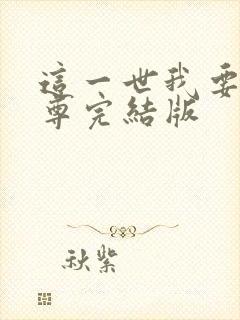 這一世我要
尊完結版
秋紫